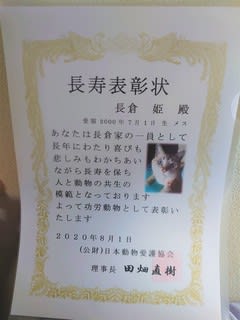 長寿表彰状
長倉 姫 殿
受領2000年7月1日生 メス
あなたは長倉家の一員として
長年にわたり喜びも
悲しみもわかちあい
ながら長寿を保ち
人と動物の共生の
模範となっております
よって功労動物として表彰い
たします
2020年8月1日
(公財)日本動物愛護協会
理事長 田畑直樹